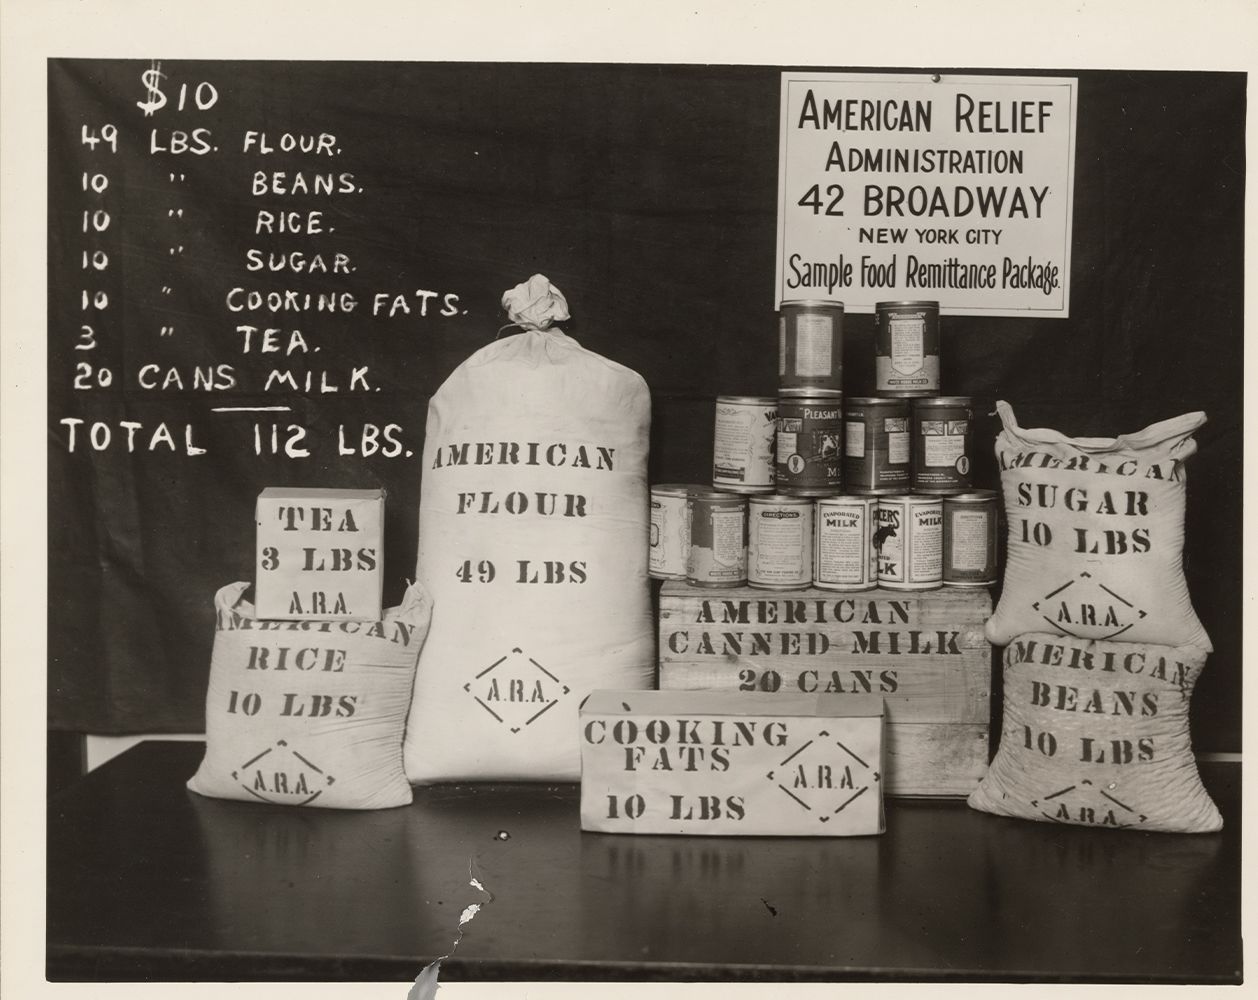 $10
49 LBS. FLOUR.
10 " BEANS.
10 " RICE.
10 " SUGAR.
10 " COOKING FATS.
3 " TEA.
20 CANS MILK.
TOTAL 112 LBS.
AMERICAN RELIEF
ADMINISTRATION
42 BROADWAY
NEW YORK CITY
Sample Food Remittance Package.
TEA
3 LBS
A.R.A.
AMERICAN
RICE
10 LBS
A.R.A.
AMERICAN
FLOUR
49 LBS
A.R.A.
"PLEASANT
DIRECTIONS
EVAPORATED
MILK
EVAPORATED
MILK
AMERICAN
CANNED MILK
20 CANS
COOKING
FATS
10 LBS
A.R.A.
AMERICAN
SUGAR
10 LBS
A.R.A.
AMERICAN
BEANS
10 LBS
A.R.A.